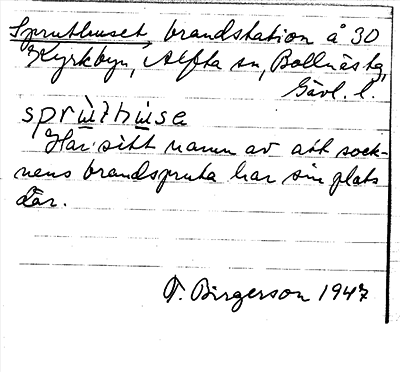 Spruthuset, brandstation å 30
Kyrkbyn, Alfta sn, Bollnäs tg,
Gävl. l.
sprùthùse
Har sitt namn av att sock-
nens brandspruta har sin plats
där.
T. Birgerson 1947